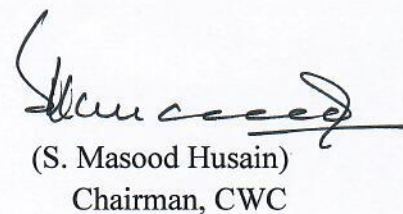 (S. Masood Husain)
Chairman, CWC